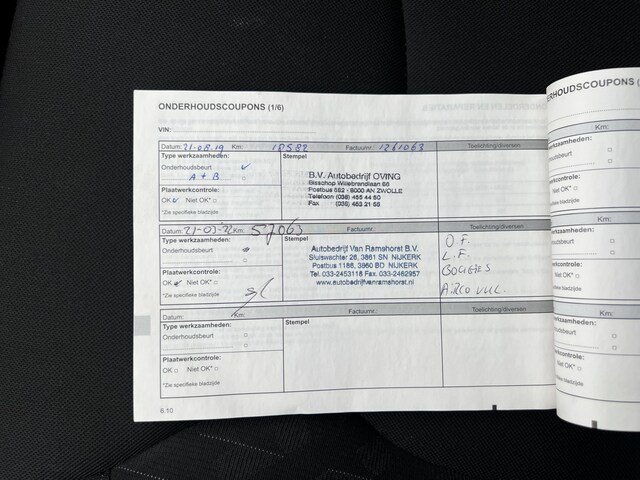 ONDERHOUDSCOUPONS (1/6)
VIN:
Datum: 21-08.19 Km: 18582 Factuurnr.: 1261063 Toelichting/diversen
Type werkzaamheden: Stempel
Onderhoudsbeurt
A + B
Plaatwerkcontrole:
OK Niet OK*
*Zie specifieke bladzijde
B.V. Autobedrijf OVING
Bisschop Willebrandlaan 66
Postbus 562 - 8000 AN ZWOLLE
Telefoon (038) 455 44 50
Fax (038) 453 21 65
Datum: 21-03- Km: 57063 Factuurnr.: Toelichting/diversen
Type werkzaamheden: Stempel
Onderhoudsbeurt
Plaatwerkcontrole:
OK Niet OK*
*Zie specifieke bladzijde
Autobedrijf Van Ramshorst B.V.
Sluiswachter 26, 3861 SN NIJKERK
Postbus 1186, 3860 BD NIJKERK
Tel. 033-2453118 Fax. 033-2462957
www.autobedrijfvanramshorst.nl
O.F.
L.F
BOUGIES
AIRCO VUL.
Datum: Km: Factuurnr.: Toelichting/diversen
Type werkzaamheden: Stempel
Onderhoudsbeurt
Plaatwerkcontrole:
OK Niet OK*
*Zie specifieke bladzijde
6.10
DERHOUDSCOUPONS (
Km:
werkzaamheden:
oudsbeurt
erkcontrole:
Niet OK*
fieke bladzijde
Km:
erkzaamheden:
udsbeurt
rkcontrole:
Niet OK*
eke bladzijde
Km:
rkzaamheden:
dsbeurt
kcontrole:
Niet OK*
ke bladzijde